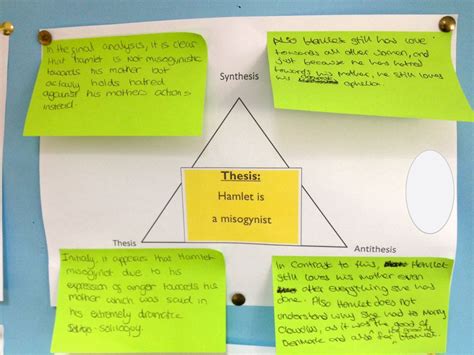 In the final analysis, it is clear
that Hamlet is not misogynistic
towards his mother but
actually holds hatred
against his mothers actions
instead.
Also Hamlet still has love
towards all other women, and
just because he has hatred
towards his mother, he still loves
his ophelia.
Synthesis
Thesis:
Hamlet is
a misogynist
Thesis
Antithesis
Initially, it appears that Hamlet
misogynist due to his
expression of anger towards his
mother which was said in
his extremely dramatic
soliloquy.
In Contrast to this, Hamlet
still loves his mother even
after everything she had
done. Also Hamlet does not
understand why she had to Marry
Claudius, as it was the good of
Denmark and also for Hamlet.